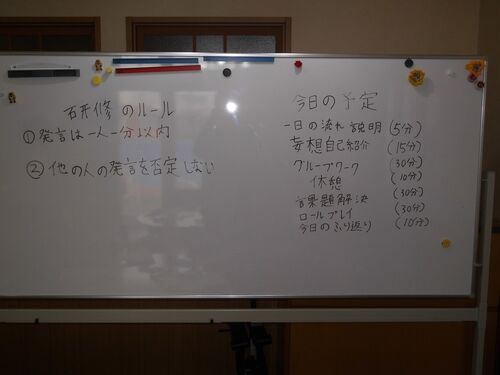 研修のルール
①発言は一人一分以内
②他の人の発言を否定しない
今日の予定
一日の流れ説明(5分)
妄想自己紹介(15分)
グループワーク(30分)
休憩(10分)
課題解決(30分)
ロールプレイ(30分)
今日のふり返り(10分)